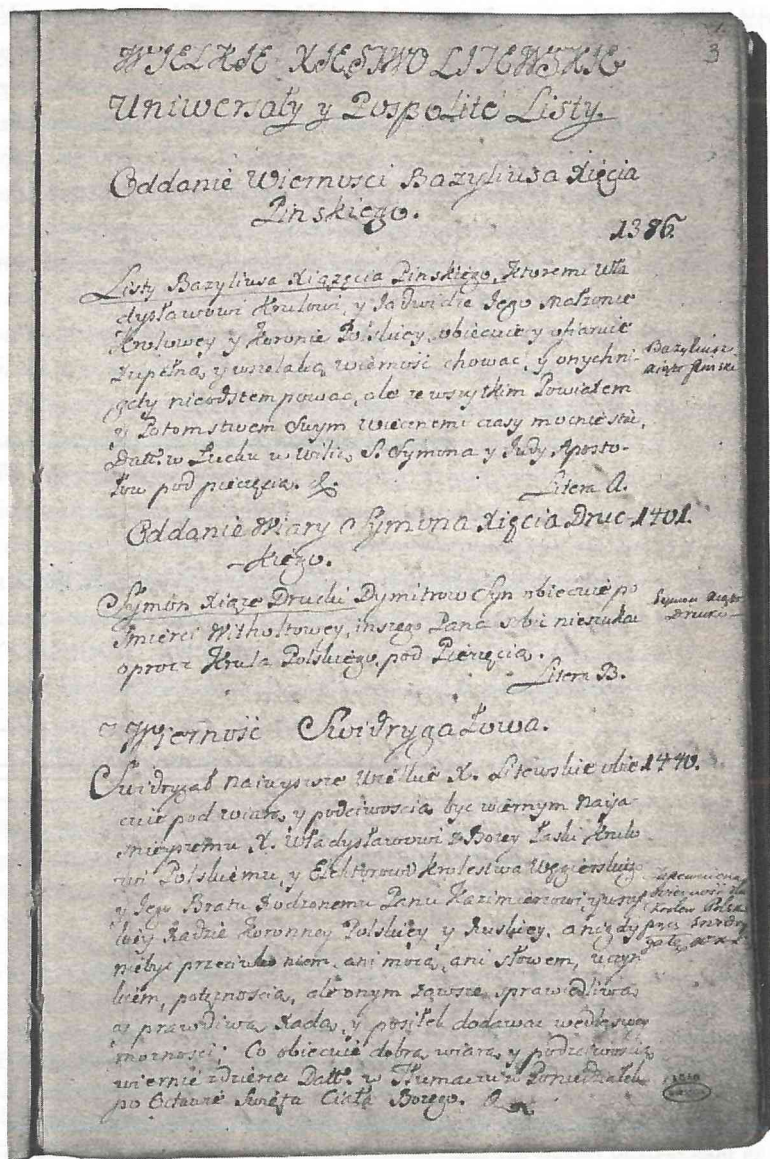 3
WIELKIE XIĘSTWO LITEWSKIE
Uniwersały y Pospolite Listy.
Oddanie Wiernosci Bazyliusa Xięcia
Pinskiego.
1386.
Listy Bazyliusa Xiązęcia Pinskiego, ktoremi Wła
dysławowi Krulowi, y Jadwidze Jego małzonce
Krolowey y Koronie Polskiey, obiecuie y ofiaruie
zupełną y wszelaką wierność chować, y onych ni-
gdy nieodstempować, ale ze wszytkim Powiatem
y Potomstwem Swym wiecznemi czasy mocnie stać,
Datt. w Łucku w Wilią S. Symona y Judy Aposto-
łow pod pieczęcią. &.
Bazyliusz
Litera A.
Oddanie Wiary Symona Xięcia Druc- 1401.
-kiego.
Symon Xiąze Drucki Dymitrow Syn obiecuie po
Smierci Witholtowey, inszego Pana sobie nieszukać
oprocz Krula Polskiego, pod Pieczęcią.
Symon Xiąże
Drucki
Litera B.
Wierność Swidrygałowa.
Swidrygał naiwyzsze Wielkie X. Litewskie obie 1440.
cuie pod wiarą y podciwoscią być wiernym Nayia
snieyszemu X. Władysławowi z Bozey Łaski Krulo
wi Polskiemu y Elektorowi Krolestwa Węgierskiego
y Jego Bratu Rodzonemu Panu Kazimierzowi
Radzie Koronney Polskiey y Ruskiey, a nigdy
niebyć przeciwko niem, ani mocą, ani słowem, uczyn
kiem, potęznoscią, ale onym zawsze sprawiedliwą
a prawdziwą Radą, y posiłek dodawac według swey
moznosci; Co obiecuie dobrą wiarą y podciwoscią
wiernie zdzierzeć Datt. w Tłumaczu w Poniedziałek
po Octawie Swięta Ciała Bozego.